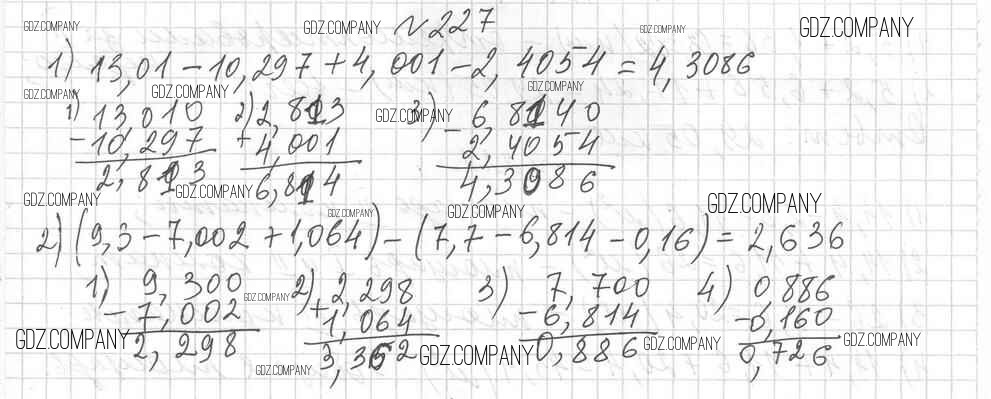 GDZ.COMPANY GDZ.COMPANY № 227 GDZ.COMPANY GDZ.COMPANY
1) 13,01 - 10,297 + 4,001 - 2,4054 = 4,3086
GDZ.COMPANY GDZ.COMPANY GDZ.COMPANY GDZ.COMPANY
1) 13,010 2) 2,813 3) 6,8140
- 10,297 + 4,001 - 2,4054
2,813 6,814 4,3086
GDZ.COMPANY GDZ.COMPANY GDZ.COMPANY GDZ.COMPANY GDZ.COMPANY
2) (9,3 - 7,002 + 1,064) - (7,7 - 6,814 - 0,16) = 2,636
1) 9,300 2) 2,298 3) 7,700 4) 0,886
GDZ.COMPANY
- 7,002 + 1,064 - 6,814 - 0,160
2,298 3,362 0,886 0,726
GDZ.COMPANY GDZ.COMPANY GDZ.COMPANY GDZ.COMPANY GDZ.COMPANY